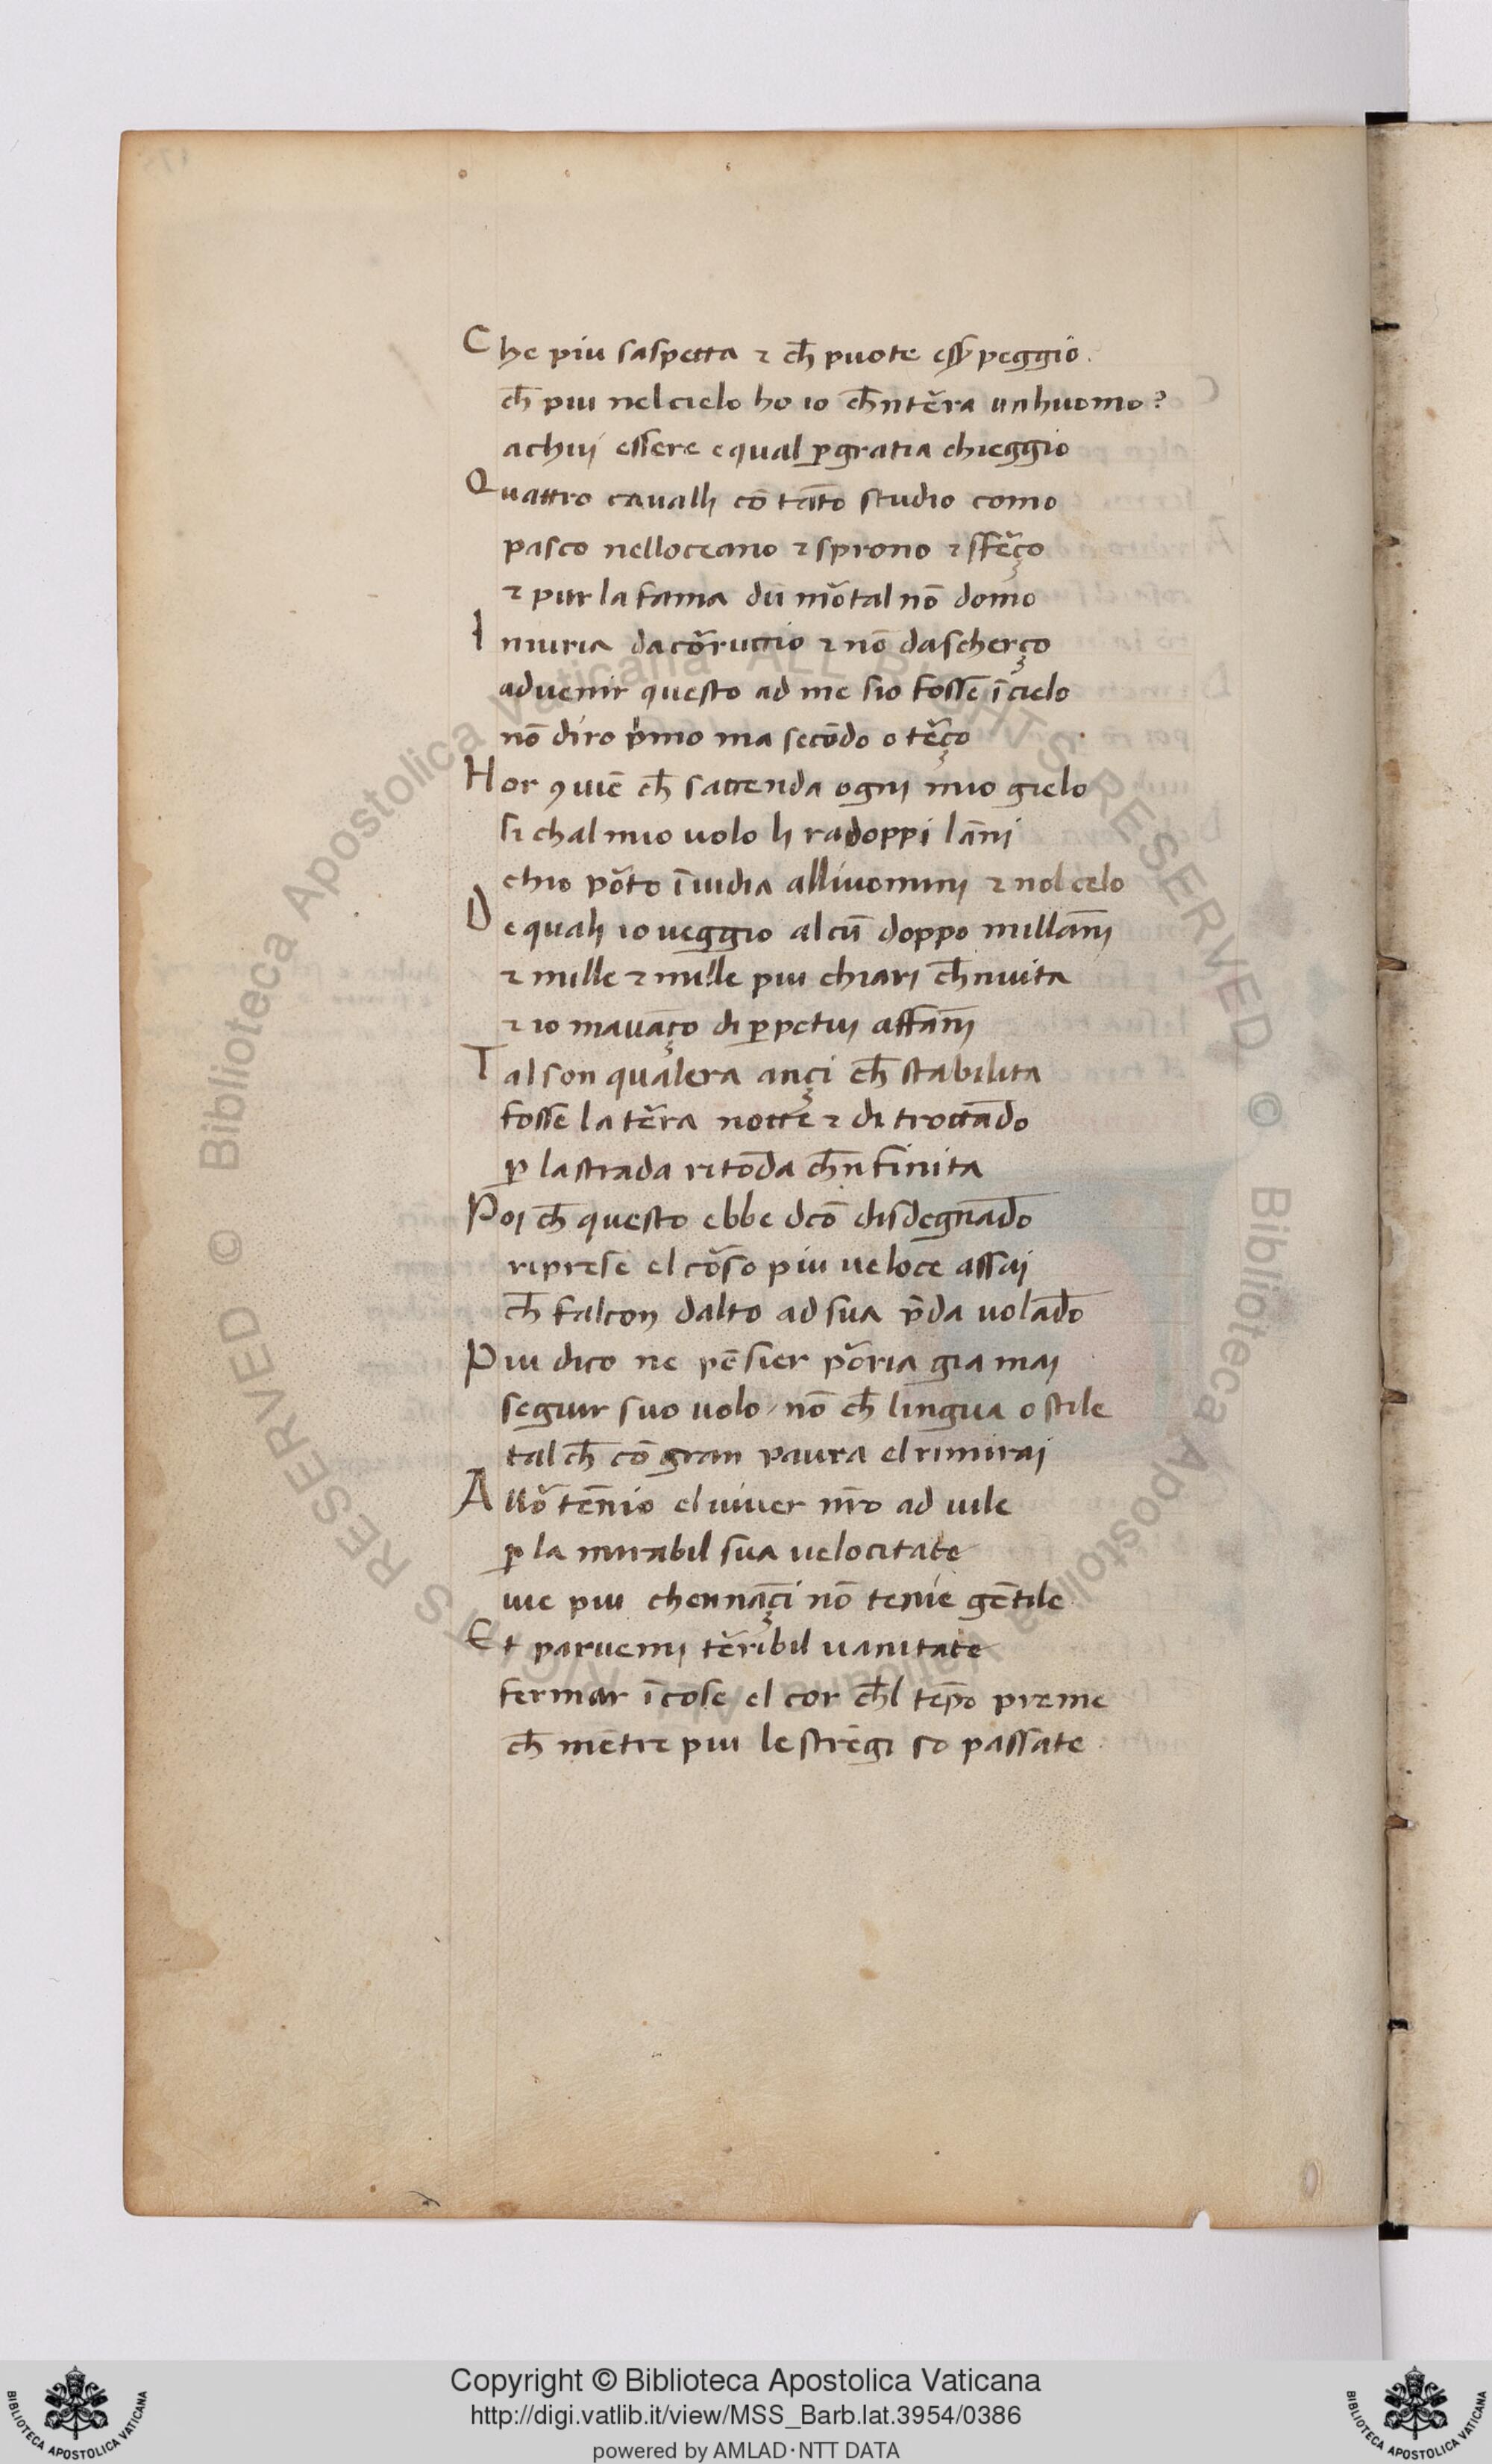 Che piu saspetta ⁊ ch̄ puote esẜ peggio.
ch̄ piu nel cielo ho io ch̄nter̄a un huomo?
achuj essere equal ꝑ gratia chieggio
Quattro caualli cō tāto studio como
pasco nelloceano ⁊ sprono ⁊ sfer̄ço
⁊ pur la fama dū mor̄tal nō domo
Iniuria da cor̄ruccio ⁊ nō da scherço
aduenir questo ad me sio fosse ī cielo
nō diro p̍mo ma secōdo o ter̄ço
Hor ꝯuiē ch̄ sattenda ogni mio gielo
si chal mio uolo li radoppi lān̄i
chio por̄to īuidia allhuominj ⁊ nol celo
De quali io ueggio alcū doppo millān̄j
⁊ mille ⁊ mille piu chiari ch̄nuita
⁊ io mauāço di ꝑpetuj affān̄j
Tal son qualera ançi ch̄ stabilita
fosse la ter̄ra notte ⁊ di trottādo
ꝑ la strada ritōda ch̄nfinita
Poi ch̄ questo ebbe dc̄o disdegnādo
riprese el cor̄so piu ueloce assaj
ch̄ falcon dalto ad sua p̄da uolādo
Piu dico ne pēsier por̄ria gia maj
seguir suo uolo / nō ch̄ lingua o stile
tal ch̄ cō gran paura el rimiraj
Allor̄ tēnio el uiuer nr̄o ad uile
ꝑ la mirabil sua uelocitate
uie piu chennāçi nō tenie gētile
Et paruemj ter̄ribil uanitate
fermar ī cose el cor ch̄l tēpo preme
ch̄ mētre piu le strēgi sō passate.
Copyright © Biblioteca Apostolica Vaticana
http://digi.vatlib.it/view/MSS_Barb.lat.3954/0386
powered by AMLAD·NTT DATA
BIBLIOTECA APOSTOLICA VATICANA
BIBLIOTECA APOSTOLICA VATICANA
© Biblioteca Apostolica Vaticana ALL RIGHTS RESERVED
© Biblioteca Apostolica Vaticana ALL RIGHTS RESERVED